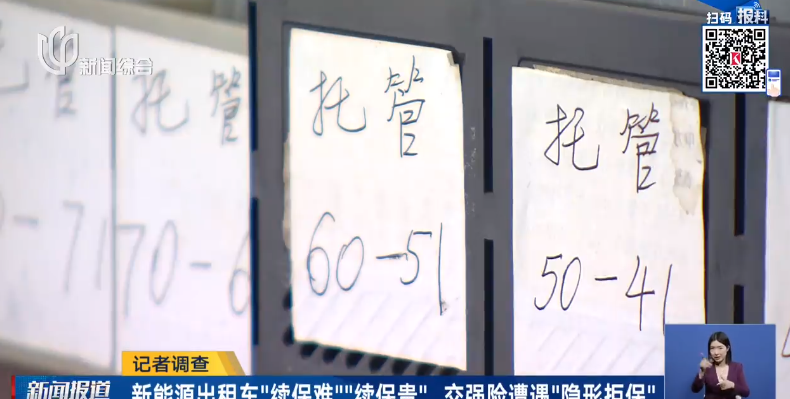 扫码 报料
新闻综合
托管
70-6
托管
60-51
托管
50-41
-71
记者调查
新闻报道
新能源出租车"续保难""续保贵" 交强险遭遇"隐形拒保"